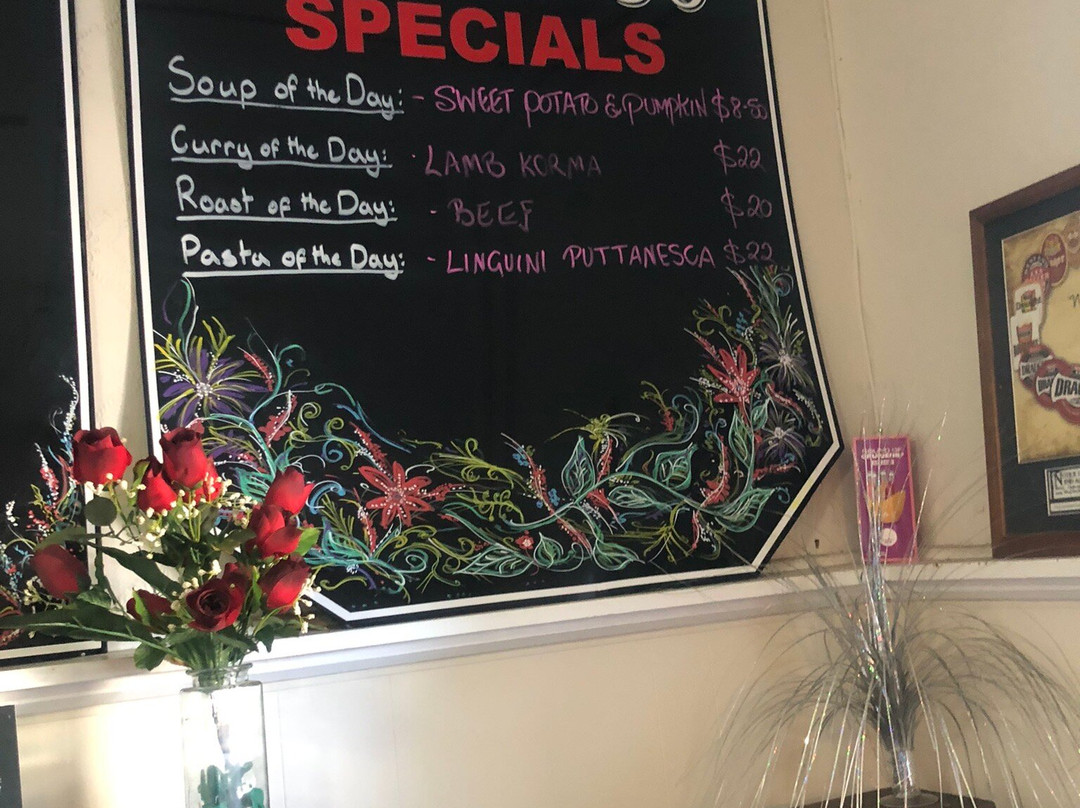 SPECIALS
Soup of the Day: - SWEET POTATO & PUMPKIN $8-50
Curry of the Day: - LAMB KORMA $22
Roast of the Day: - BEEF $20
Pasta of the Day: - LINGUINI PUTTANESCA $22